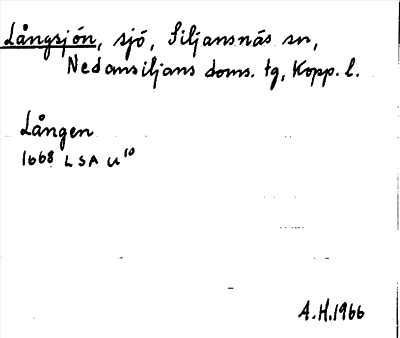 Långsjön, sjö, Siljansnäs sn,
Nedansiljans doms. tg, Kopp. l.
Lången
1668 LSA U¹⁰
A.H.1966